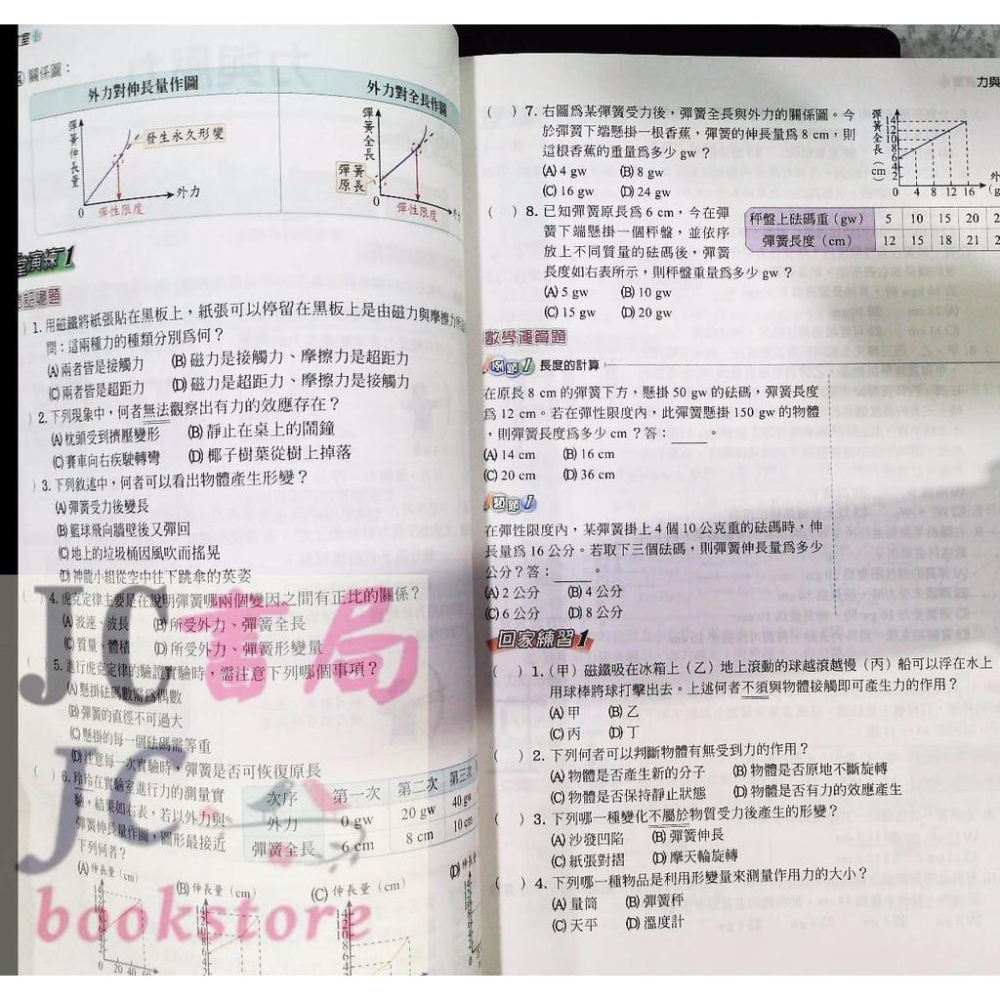 關係圖：
外力對伸長量作圖
外力對全長作圖
彈簧伸長量
發生永久形變
外力
0
彈性限度
彈簧全長
彈簧原長
0
彈性限度
外力
演練1
1. 用磁鐵將紙張貼在黑板上，紙張可以停留在黑板上是由磁力與摩擦力所
問：這兩種力的種類分別為何？
(A)兩者皆是接觸力 (B)磁力是接觸力、摩擦力是超距力
(C)兩者皆是超距力 (D)磁力是超距力、摩擦力是接觸力
( ) 2. 下列現象中，何者無法觀察出有力的效應存在？
(A)枕頭受到擠壓變形 (B)靜止在桌上的鬧鐘
(C)賽車向右疾駛轉彎 (D)椰子樹葉從樹上掉落
( ) 3. 下列敘述中，何者可以看出物體產生形變？
(A)彈簧受力後變長
(B)籃球飛向牆壁後又彈回
(C)地上的垃圾桶因風吹而搖晃
(D)神龍小組從空中往下跳傘的英姿
( ) 4. 虎克定律主要是在說明彈簧哪兩個變因之間有正比的關係？
(A)波速、波長 (B)所受外力、彈簧全長
(C)質量、體積 (D)所受外力、彈簧形變量
( ) 5. 進行虎克定律的驗證實驗時，需注意下列哪個事項？
(A)懸掛砝碼數需為偶數
(B)彈簧的直徑不可過大
(C)懸掛的每一個砝碼需等重
(D)注意每一次實驗時，彈簧是否可恢復原長
( ) 6. 玲玲在實驗室進行力的測量實
驗，結果如右表，若以外力與
彈簧伸長量作圖，圖形最接近
下列何者？
次序 第一次 第二次 第三次
外力 0 gw 20 gw 40 gw
彈簧全長 6 cm 8 cm 10 cm
(A) 伸長量（cm） (B) 伸長量（cm） (C) 伸長量（cm） (D) 伸長量（cm）
JC書局
JC
bookstore
力與
( ) 7. 右圖為某彈簧受力後，彈簧全長與外力的關係圖。今
於彈簧下端懸掛一根香蕉，彈簧的伸長量為 8 cm，則
這根香蕉的重量為多少 gw？
(A) 4 gw (B) 8 gw
(C) 16 gw (D) 24 gw
彈簧全長(cm)
14
12
10
8
6
4
2
0 4 8 12 16
( ) 8. 已知彈簧原長為 6 cm，今在彈
簧下端懸掛一個秤盤，並依序
放上不同質量的砝碼後，彈簧
長度如右表所示，則秤盤重量為多少 gw？
(A) 5 gw (B) 10 gw
(C) 15 gw (D) 20 gw
秤盤上砝碼重（gw） 5 10 15 20 2
彈簧長度（cm） 12 15 18 21 2
數學運算題
例題1 長度的計算
在原長 8 cm 的彈簧下方，懸掛 50 gw 的砝碼，彈簧長度
為 12 cm。若在彈性限度內，此彈簧懸掛 150 gw 的物體
，則彈簧長度為多少 cm？答：____。
(A) 14 cm (B) 16 cm
(C) 20 cm (D) 36 cm
類題1
在彈性限度內，某彈簧掛上 4 個 10 公克重的砝碼時，伸
長量為 16 公分。若取下三個砝碼，則彈簧伸長量為多少
公分？答：____。
(A) 2 公分 (B) 4 公分
(C) 6 公分 (D) 8 公分
回家練習1
( ) 1. (甲) 磁鐵吸在冰箱上 (乙) 地上滾動的球越滾越慢 (丙) 船可以浮在水上
用球棒將球打擊出去。上述何者不須與物體接觸即可產生力的作用？
(A)甲 (B)乙
(C)丙 (D)丁
( ) 2. 下列何者可以判斷物體有無受到力的作用？
(A)物體是否產生新的分子 (B)物體是否原地不斷旋轉
(C)物體是否保持靜止狀態 (D)物體是否有力的效應產生
( ) 3. 下列哪一種變化不屬於物質受力後產生的形變？
(A)沙發凹陷 (B)彈簧伸長
(C)紙張對摺 (D)摩天輪旋轉
( ) 4. 下列哪一種物品是利用形變量來測量作用力的大小？
(A)量筒 (B)彈簧秤
(C)天平 (D)溫度計